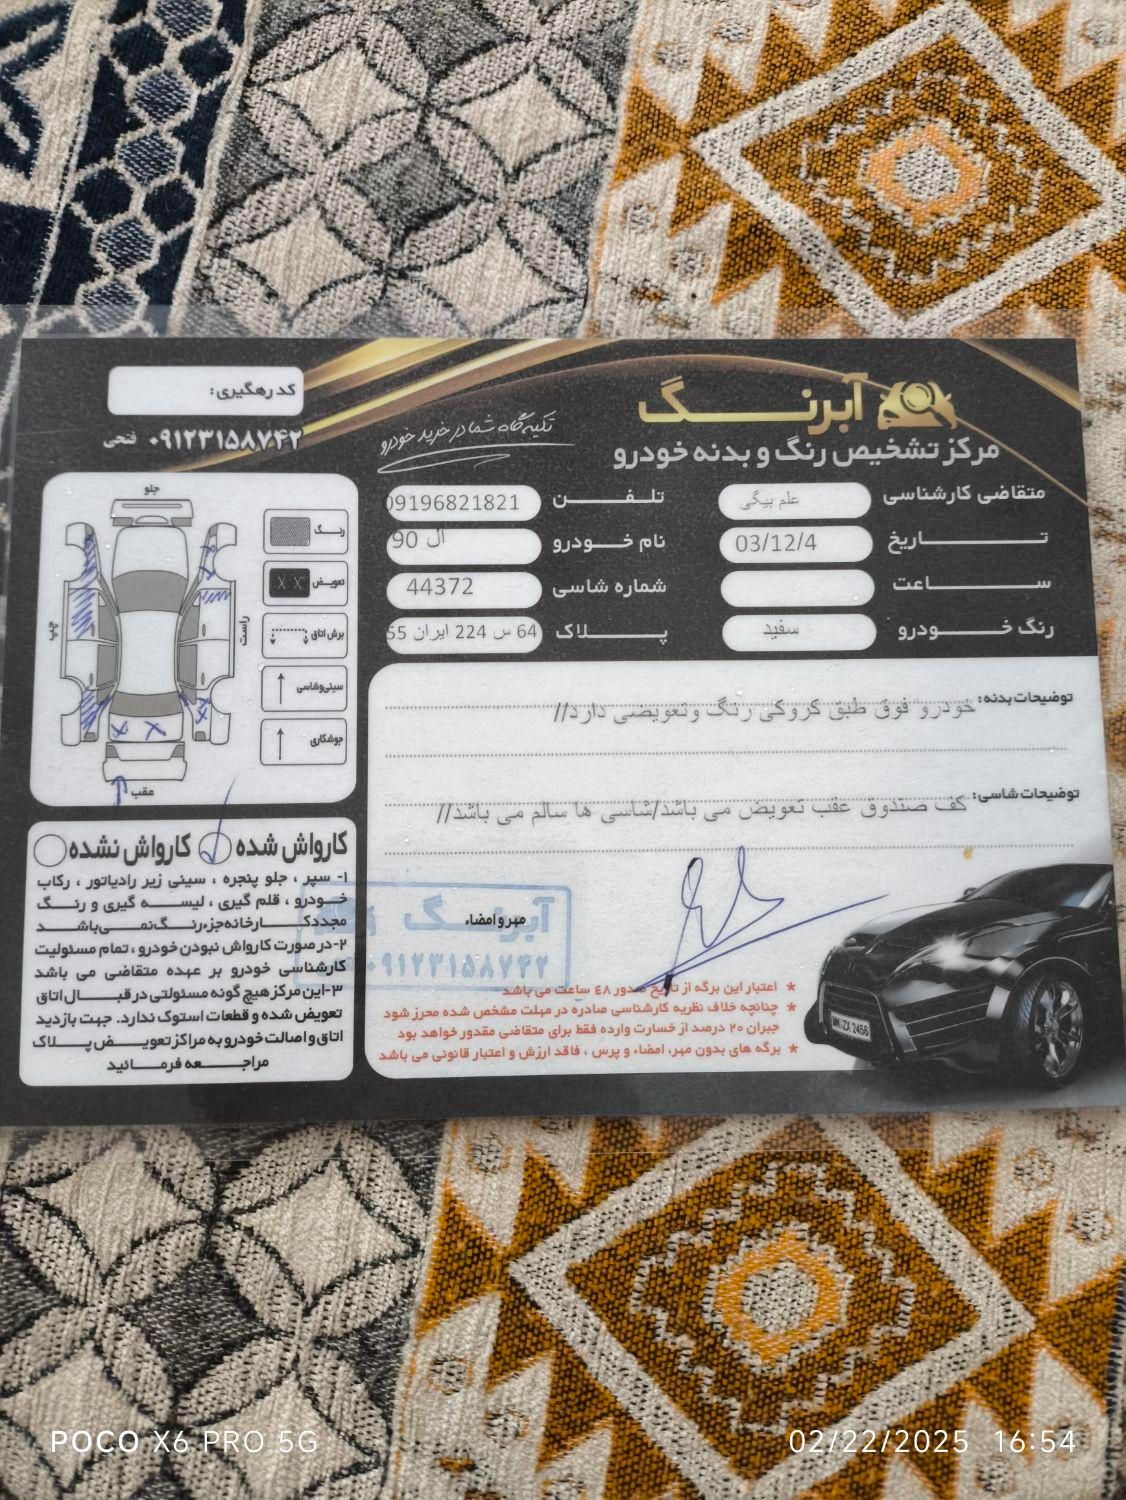 آبرنگ
مرکز تشخیص رنگ و بدنه خودرو
تکیه گاه شما در خرید خودرو
کد رهگیری:
۰۹۱۲۳۱۵۸۷۴۲ فتحی
متقاضی کارشناسی علم بیگی
تلفن 09196821821
تاریخ 03/12/4
نام خودرو ال 90
ساعت
شماره شاسی 44372
رنگ خودرو سفید
پلاک 64 س 224 ایران 55
توضیحات بدنه: خودرو فوق طبق کروکی رنگ وتعویضی دارد//
توضیحات شاسی: کف صندوق عقب تعویض می باشد/شاسی ها سالم می باشد//
مهر و امضاء
آبرنگ
۰۹۱۲۳۱۵۸۷۴۲
* اعتبار این برگه از تاریخ صدور ٤٨ ساعت می باشد
* چنانچه خلاف نظریه کارشناسی صادره در مهلت مشخص شده محرز شود
جبران ۲۰ درصد از خسارت وارده فقط برای متقاضی مقدور خواهد بود
* برگه های بدون مهر، امضاء و پرس ، فاقد ارزش و اعتبار قانونی می باشد
جلو
چپ
راست
عقب
رنگ
تعویض
X X
برش اتاق
سینی‌وشاسی
جوشکاری
کارواش شده
کارواش نشده
۱- سپر ، جلو پنجره ، سینی زیر رادیاتور ، رکاب
خودرو ، قلم گیری ، لیسه گیری و رنگ
مجدد کارخانه جزء رنگ نمی باشد
۲-در صورت کارواش نبودن خودرو ، تمام مسئولیت
کارشناسی خودرو بر عهده متقاضی می باشد
۳-این مرکز هیچ گونه مسئولتی در قبال اتاق
تعویض شده و قطعات استوک ندارد. جهت بازدید
اتاق و اصالت خودرو به مراکز تعویض پلاک
مراجعه فرمائید
ZX 2456
POCO X6 PRO 5G
02/22/2025 16:54